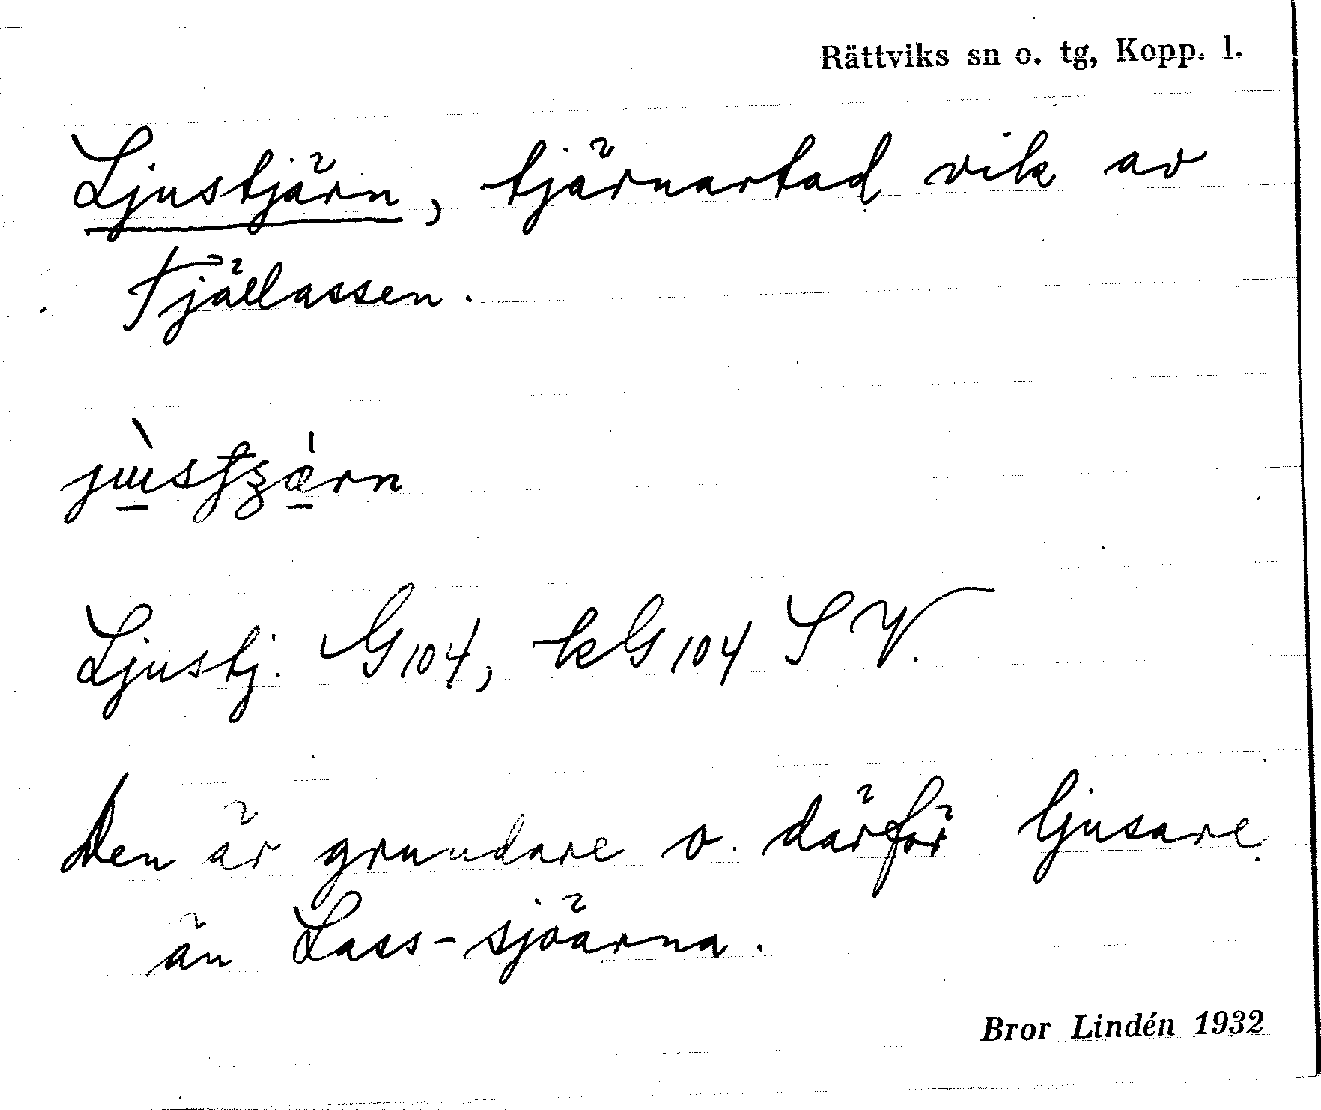 Rättviks sn o. tg, Kopp. l.
Ljustjärn, tjärnartad vik av
Fjällassen.
Ljustj. G104, kG104 SV.
Den är grundare o. därför ljusare
än Lass-sjöarna.
Bror Lindén 1932